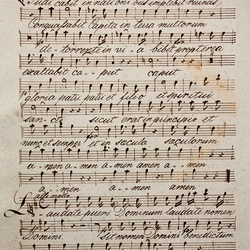 Judicabit in nationibus implebit ruinas
Conquasabit Capita in terra multorum
de torrente in via bibit propterea
exaltabit ca - put caput
gloria patri patri et filio et spiritui
san - cto sicut erat in principio et
nunc et semper et in secula saeculorum
a men a - men a - men amen a - men
a - men a - - men amen
Laudate pueri Dominum laudate nomen
Domini Sit nomen Domini Benedictum